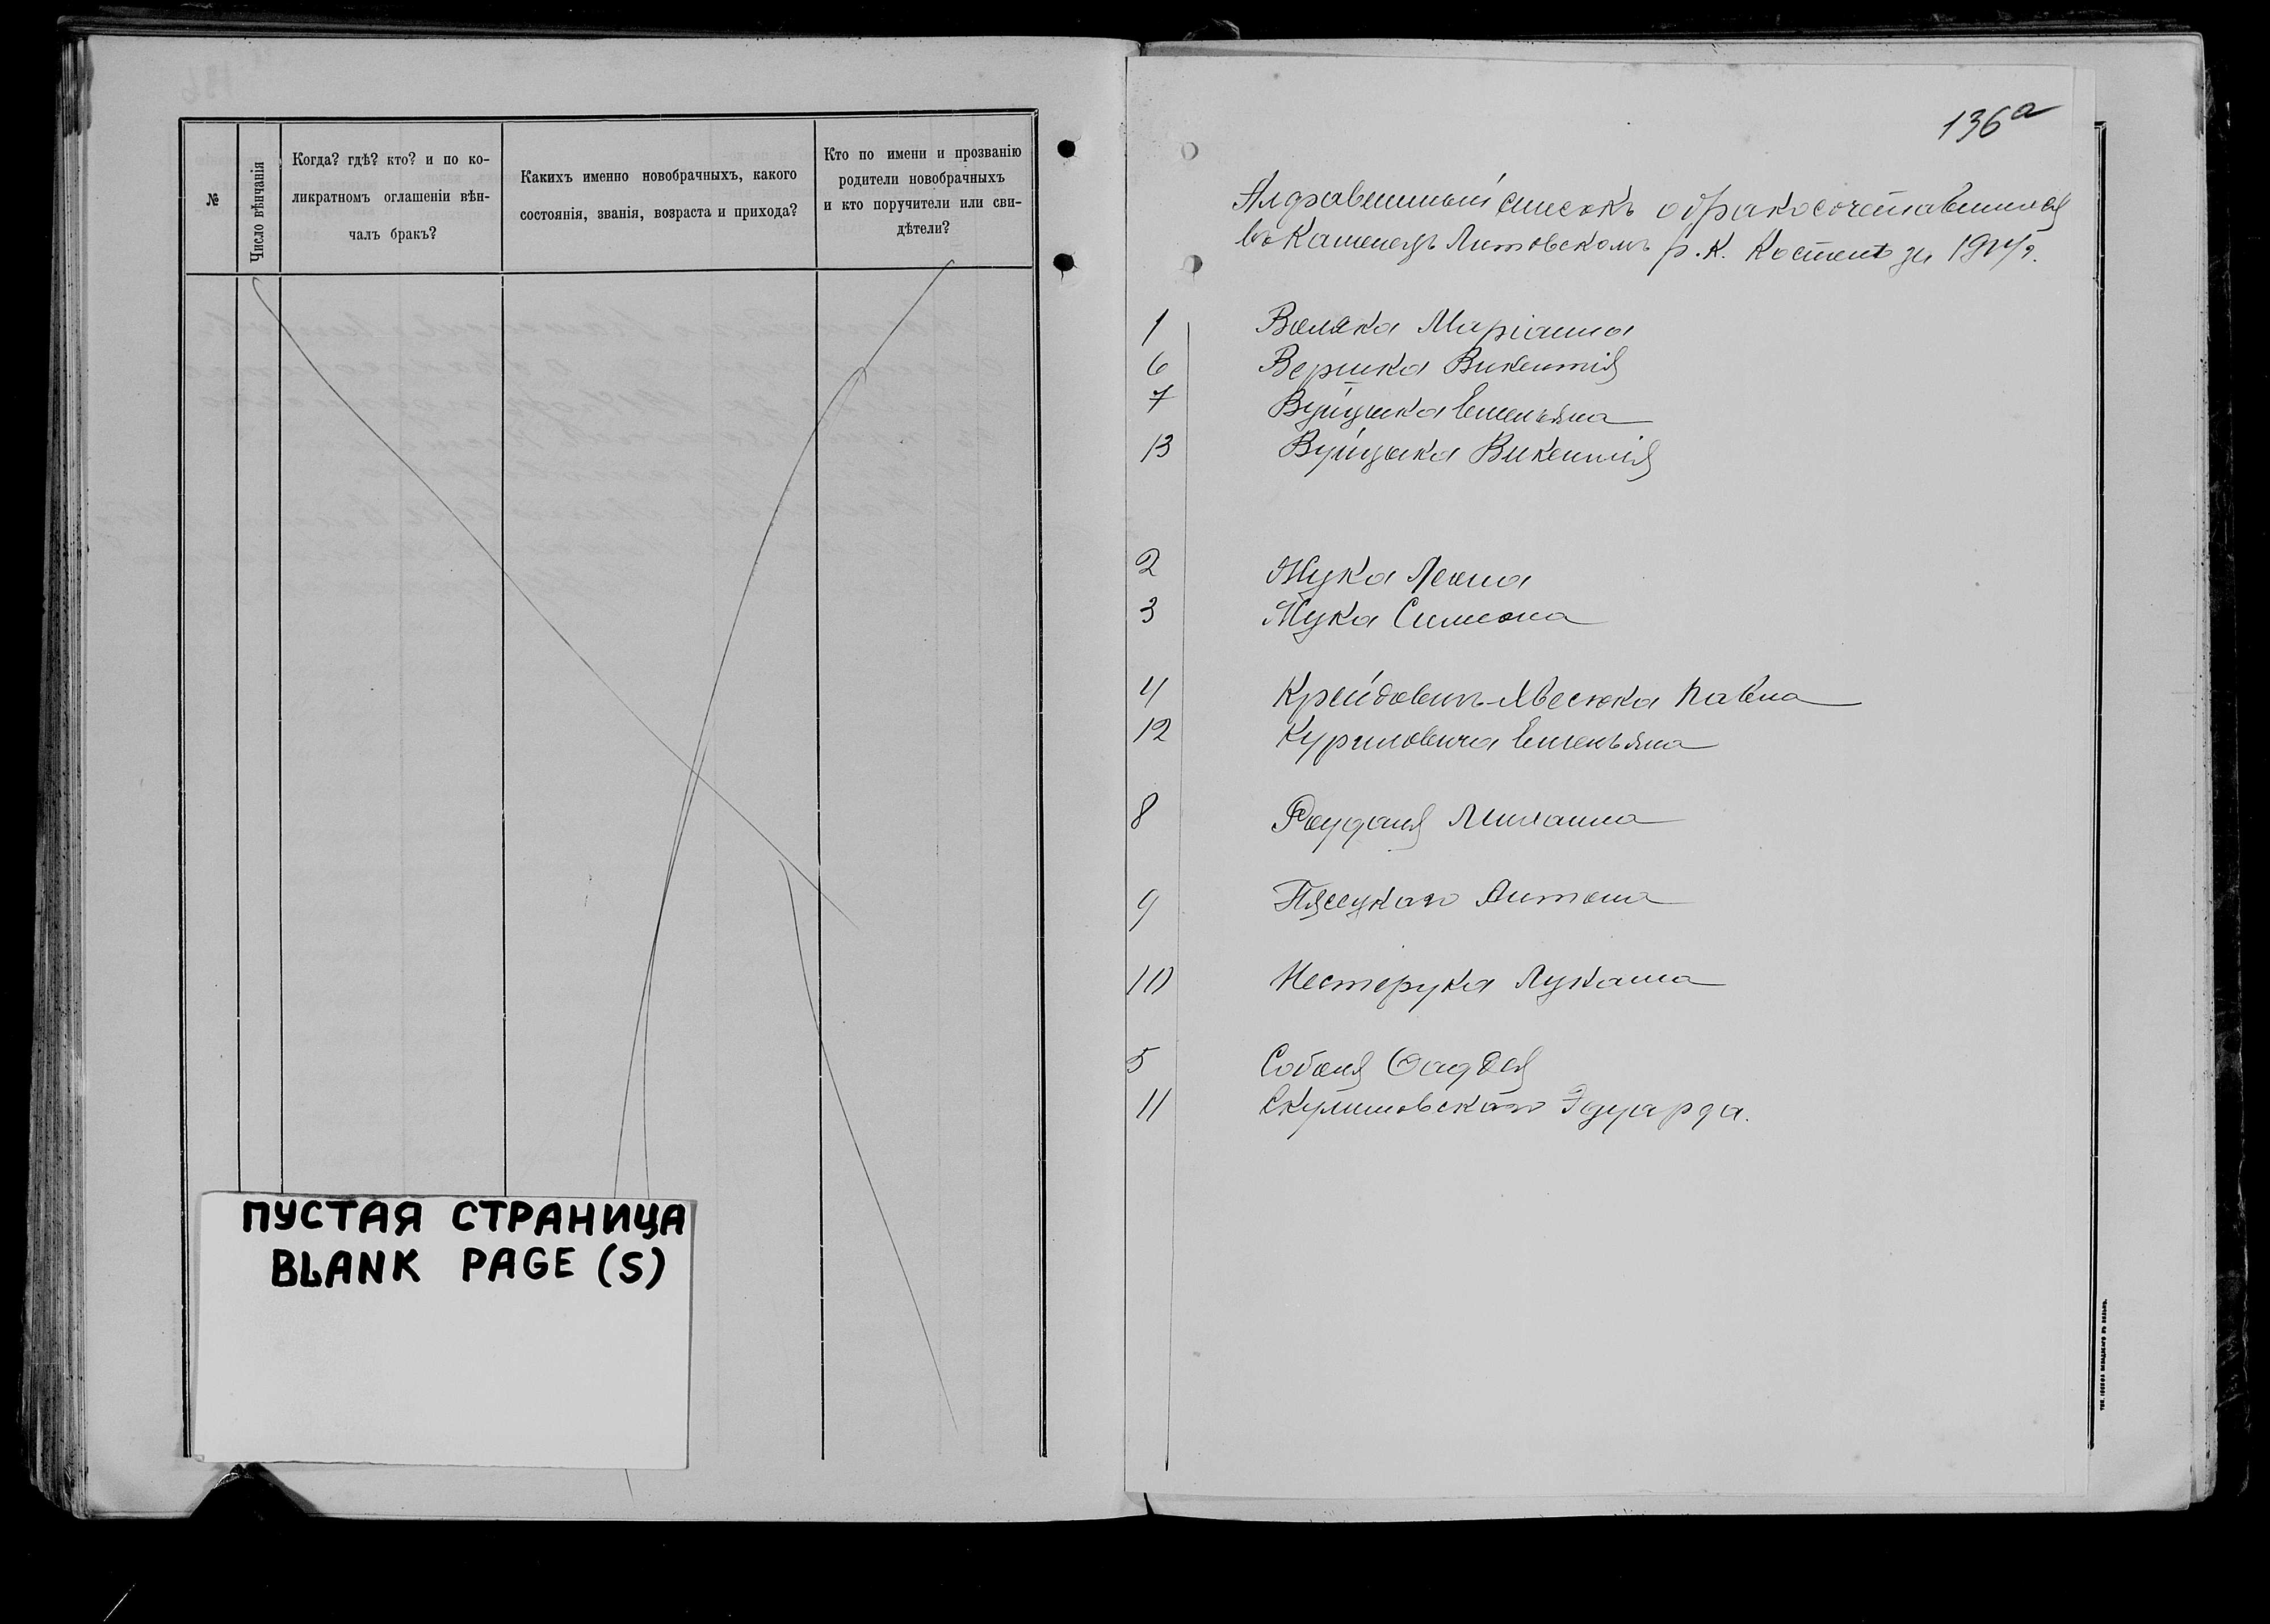 №
Число вѣнчанія
Когда? гдѣ? кто? и по ко-
ликратномъ оглашеніи вѣн-
чалъ бракъ?
Какихъ именно новобрачныхъ, какого
состоянія, званія, возраста и прихода?
Кто по имени и прозванію
родители новобрачныхъ
и кто поручители или сви-
дѣтели?
ПУСТАЯ СТРАНИЦА
BLANK PAGE (S)
136а
Алфавитный списокъ о бракосочетавшихся
въ Каменецъ Литовскомъ р. К. Костелѣ за
1 Маріанна
6 Викентія
7 Вуйцика Емельяна
13 Вуйцика Викентія
2 Жука Леона
3 Жука Симона
4 Павла
12 Куриловича Емельяна
8
9 Пясецкаго Антона
10 Нестерука Лукаша
5 Фаддея
11 Эдуарда.